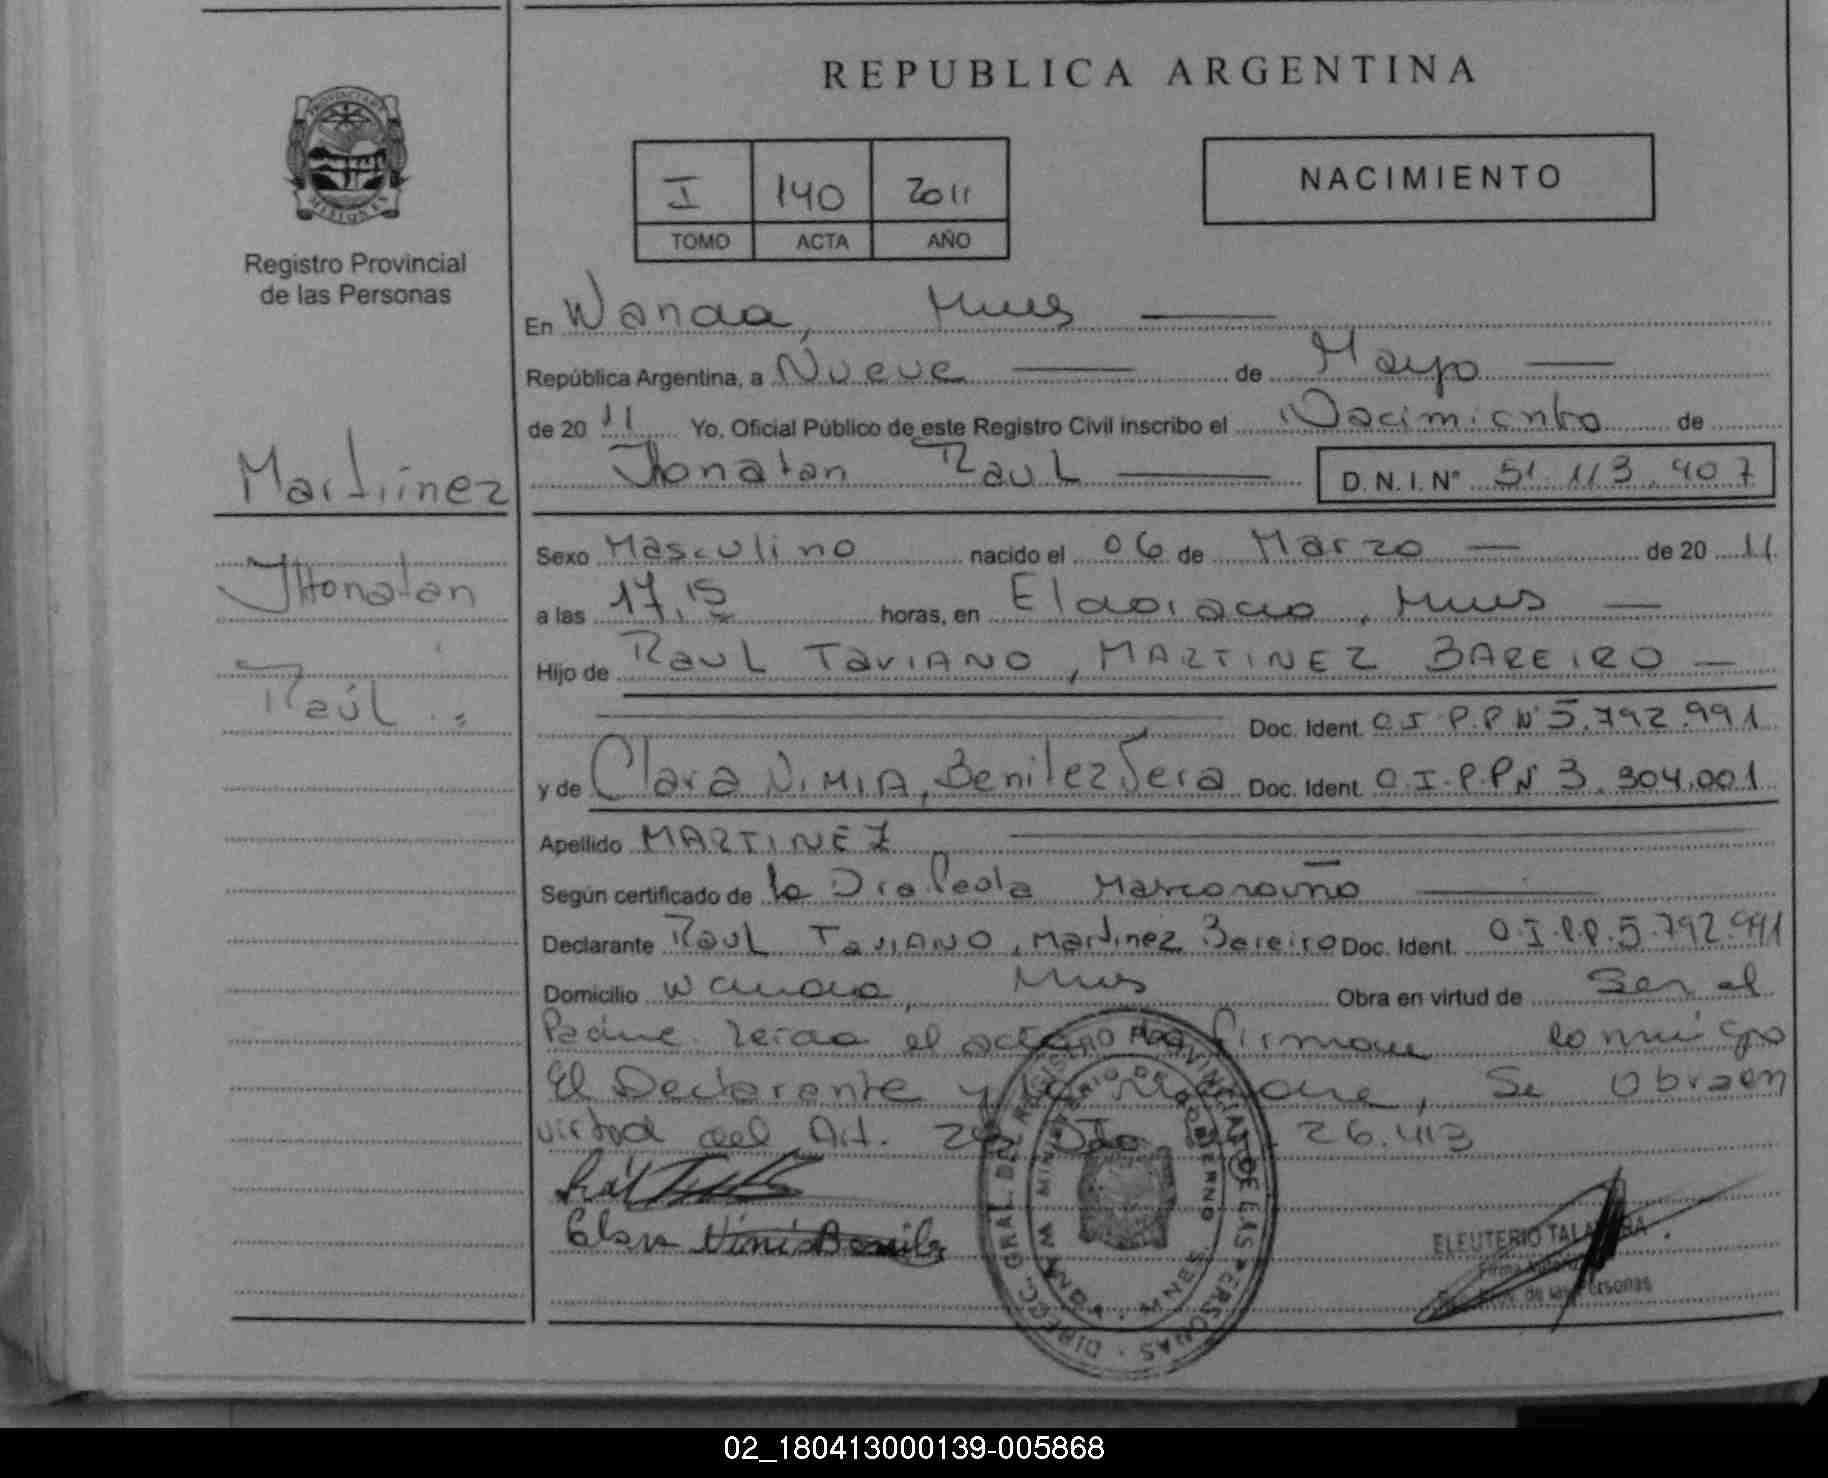 REPUBLICA ARGENTINA
PROVINCIA DE
MISIONES
Registro Provincial
de las Personas
I 140 2011
TOMO ACTA AÑO
NACIMIENTO
En Wanda, Mnes
República Argentina, a Nueve de Mayo
de 20 11 Yo, Oficial Público de este Registro Civil inscribo el Nacimiento de
Jhonatan Raul D.N.I. Nº 51.113.907
Martiinez
JHonatan
Raúl
Sexo Masculino nacido el 06 de Marzo de 20 11
a las 17,15 horas, en Eldorado, Mnes
Hijo de Raul TaviANO, MARTINEZ BAREIRO
Doc. Ident. C.I.P.P Nº 5.792.991
y de Clara NIMIA, Benitez Vera Doc. Ident. C.I.P.P Nº 3.304.001
Apellido MARTINEZ
Según certificado de la Dra Paola
Declarante Raul TaviANO, Martinez Bareiro Doc. Ident. C.I.P.P. 5.792.991
Domicilio Wanda, Mnes Obra en virtud de Ser el
Padre. Leida el acta firman conmigo
El Declarante y la Madre, Se Obra en
virtud del Art. 26.413
Clara Nimia Benitez
DIRECC. GRAL. DEL REGISTRO PROVINCIAL DE LAS PERSONAS
MINISTERIO DE GOBIERNO
WANDA MNES
ELEUTERIO TALAVERA
de las Personas
02_180413000139-005868